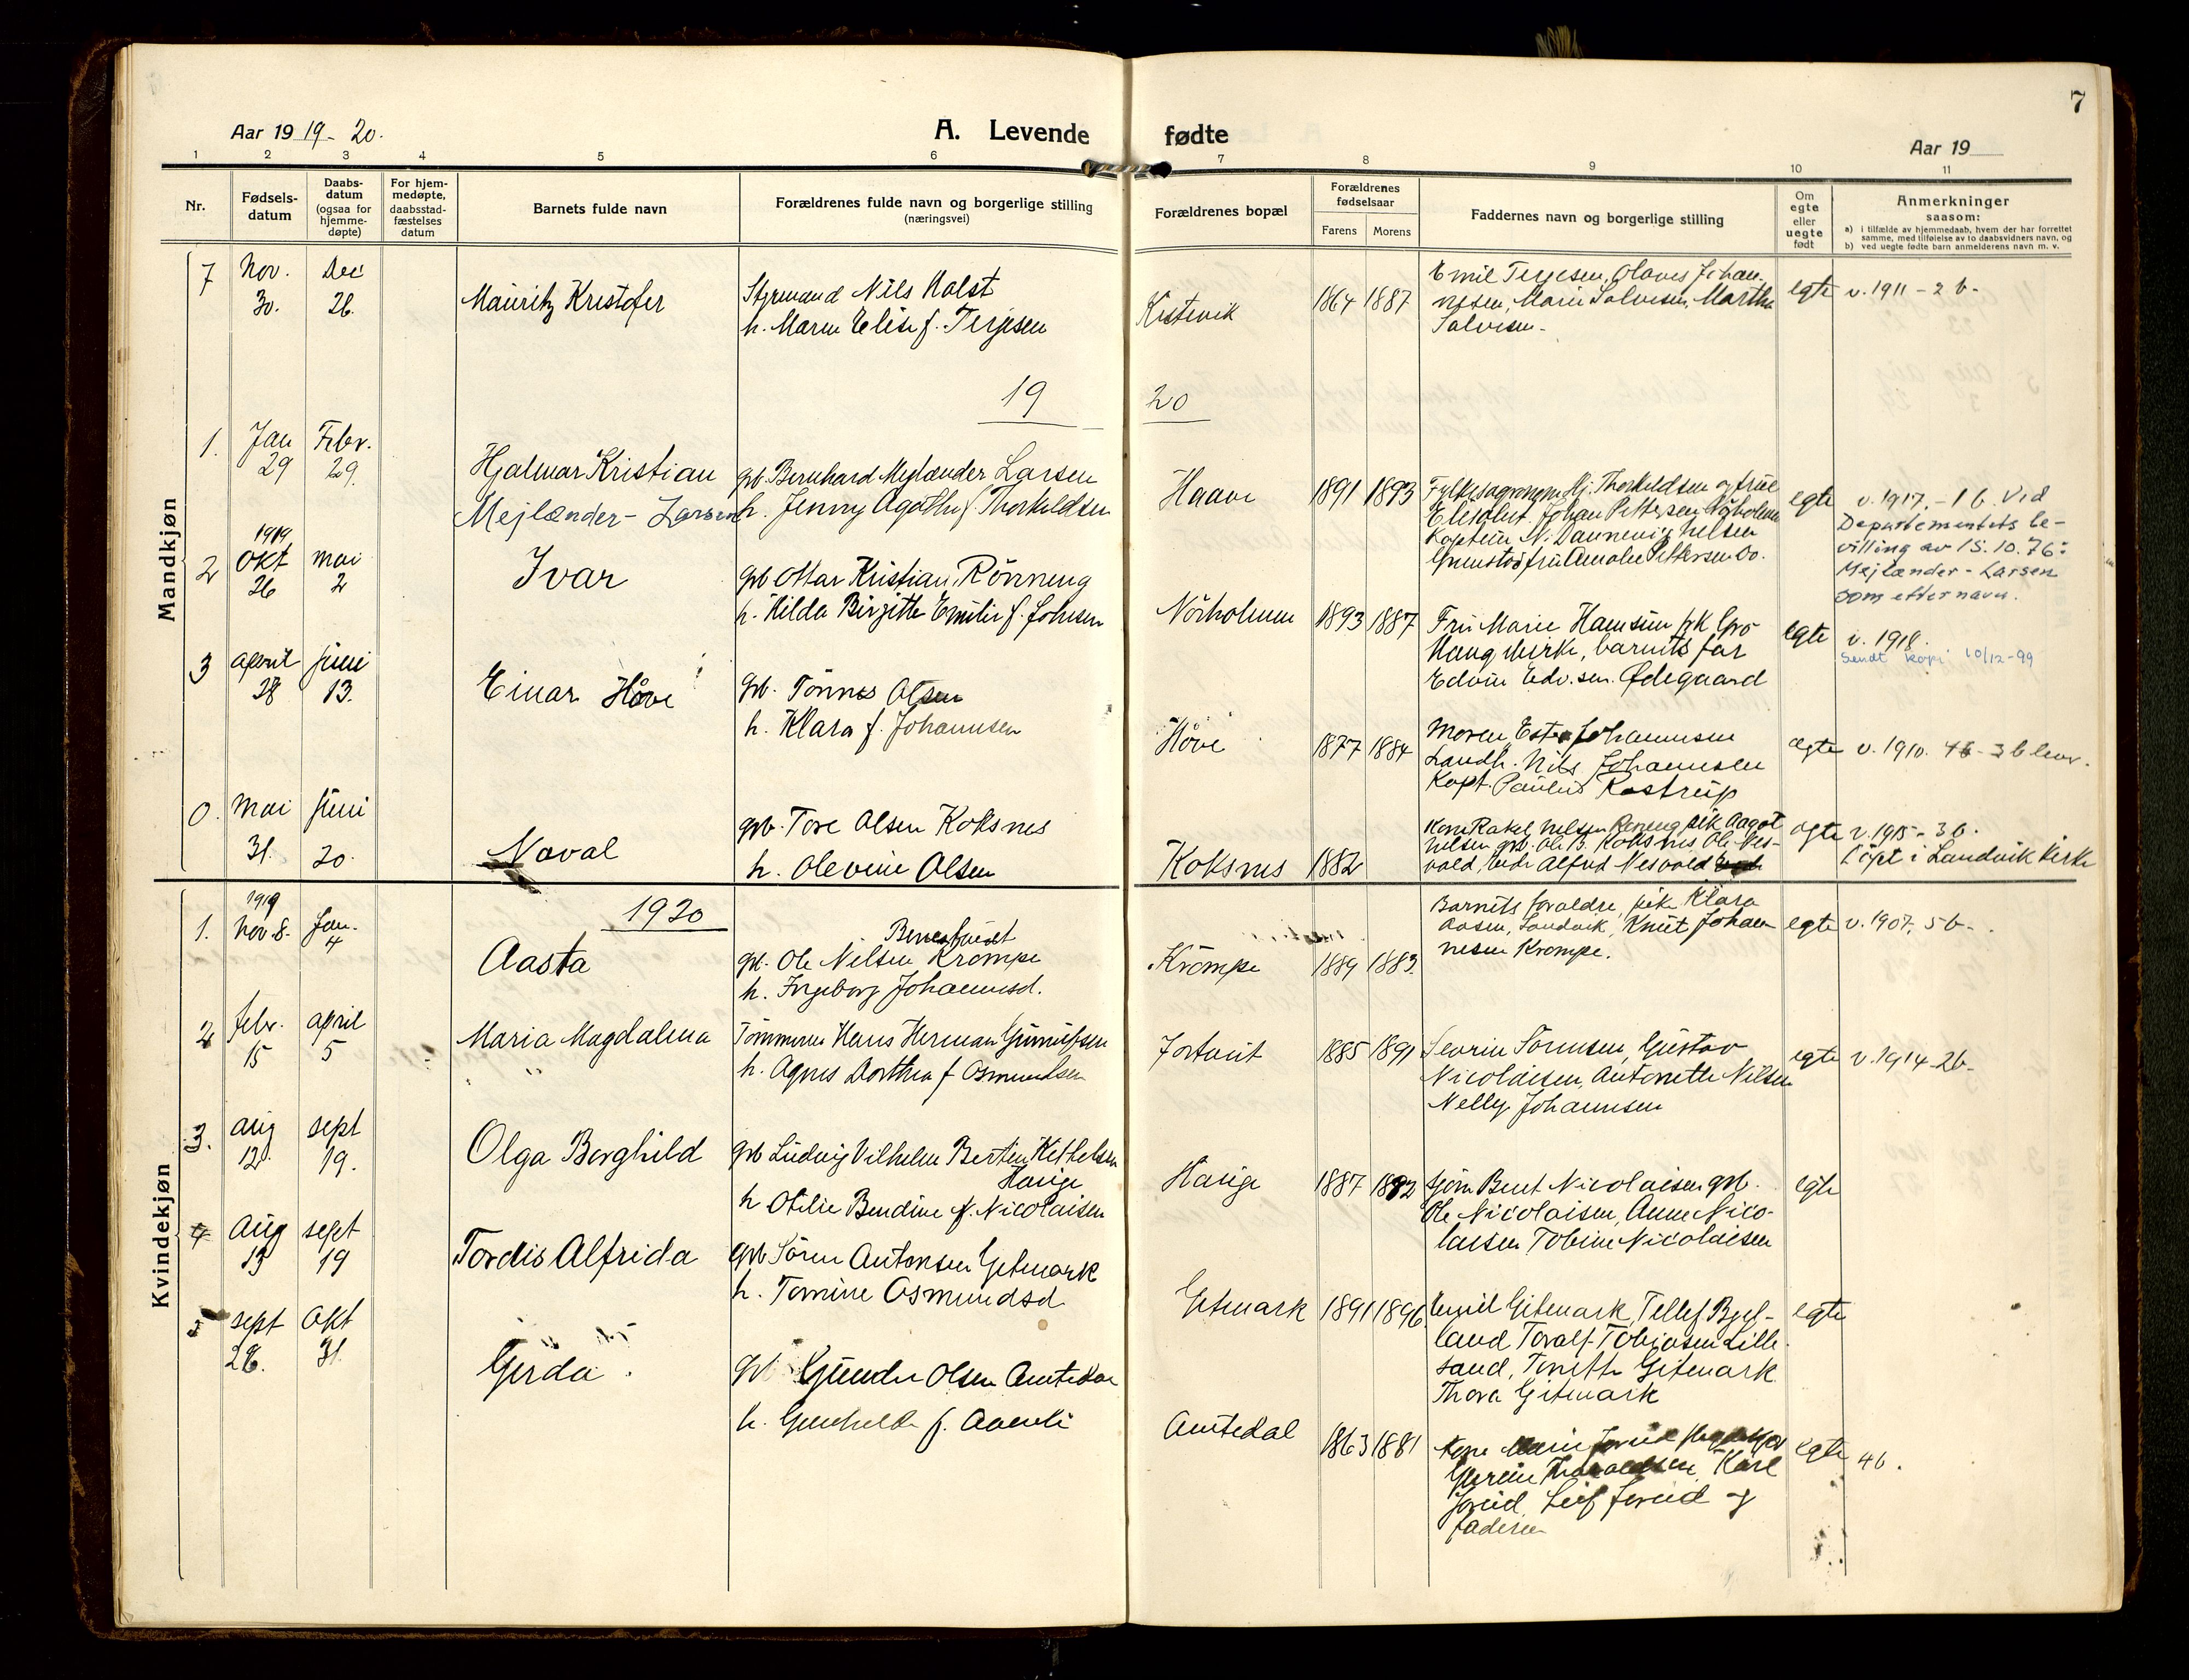 7
Aar 19 19-20.
A. Levende fødte
Aar 19
1 2 3 4 5 6 7 8 9 10 11
Nr.
Fødsels-
datum
Daabs-
datum
(ogsaa for
hjemme-
døpte)
For hjem-
medøpte,
daabsstad-
fæstelses
datum
Barnets fulde navn
Forældrenes fulde navn og borgerlige stilling
(næringsvei)
Forældrenes bopæl
Forældrenes
fødselsaar
Farens Morens
Faddernes navn og borgerlige stilling
Om
egte
eller
uegte
født
Anmerkninger
saasom:
a) i tilfælde av hjemmedaab, hvem der har forrettet
samme, med tilføielse av to daabsvidners navn, og
b) ved uegte fødte barn anmelderens navn m. v.
Mandkjøn
7
Nov.
30.
Dec
26.
Mauritz Kristofer
Styrmand Nils Holst
h. Maren Elise f. Terjesen
Kistevik
1864 1887
Emil Terjesen, Olaves Johan-
nesen, Marie Salvesen, Martha
Salvesen.
egte
v. 1911 - 2 b.
19 20
1.
Jan
29
Febr.
29.
Hjalmar Kristian
Mejlænder- Larsen
grb. Bernhard Mejlænder Larsen
h. Jenny Agathe f. Thorkildsen
Haave
1891 1893
Fylkesagronom Hj. Thorkildsen og frue
Elisabet, Johan Pettersen
Kaptein N. Dannevig Nelsen
Grimstad fru Amalie Pettersen do.
egte
v. 1917. - 1 b. Ved
Departementets be-
villing av 15.10.76:
Mejlænder - Larsen
som etternavn.
2
1919
Okt
26
Mai
2
Ivar
grb Ottar Kristian Rönneng
h. Hilda Birgitte Emilie f. Johnsen
Nörholmen
1893 1887
Fru Marie Hamsun pk Gro
Haugmirke, barnets far
Edvin Edv.sen Ødegaard
egte
v. 1918.
Sendt kopi 10/12-99
3
April
28
Juni
13.
Einar Håve
Grb. Tönnes Olsen
h. Klara f. Johannsen
Håve
1877 1884
Moren Ester Johannsen
Landh. Nils Johannsen
Kapt. Paulus Kastrup
egte
v. 1910. 4b - 3 b lev.
0.
Mai
31.
Juni
20.
Naval
grb. Tore Olsen Koksnes
h. Olevine Olsen
Koksnes
1882
Kone Rakel Nelsen pik Aagot
Nelsen grb. Ole B. Koksnes Ole Nes-
vold, Alfred Nesvold
egte
v. 1915 - 3b.
Döpt i Landvik kirke
Kvindekjøn
1920
1.
1919
Nov 8.
Jan.
4
Aasta
grb. Ole Nilsen Krömpe
h. Ingeborg Johannesd.
Krömpe
1889 1883
Barnets foraldre, pik Klara
Aasen, Landvik, Knut Johan-
nesen Krompe.
egte
v. 1907, 5 b.
2
Febr.
15
April
5
Maria Magdalena
Tömmerm Hans Herman Gunulfsen
h. Agnes Dorthea f Osmundsen
Jortveit
1885 1891
Severin Sörensen, Gustav
Nicolaisen, Antonette Nilsen
Nelly Johannsen
egte
v. 1914-2b-
3.
Aug
12
Sept
19.
Olga Borghild
grb Ludvig Vilhelm Bertin Kittelsen
Hauge
h Otilie Bendine f. Nicolaisen
Hauge
1887 1882
Sjöm Bent Nicolaisen grb.
Ole Nicolaisen, Anne Nico-
laisen Tobine Nicolaisen
egte
4
Aug
13
Sept
19
Tordis Alfrida
grb Sören Antonsen Gitmark
h. Tomine Osmundsd
Gitmark
1891 1896
Emil Gitmark, Tellef Bjel-
land Toralf Tobiasen Lille-
sand, Tonette Gitmark
Thora Gitmark
egte
5
Sept
26.
Okt
31.
Gerda
grb Gunder Olsen Amtedal
h. Gunhilde f. Aamli
Amtedal
1863 1881
Kone Marie
Karl
Leif og
faderen
egte
4 b.